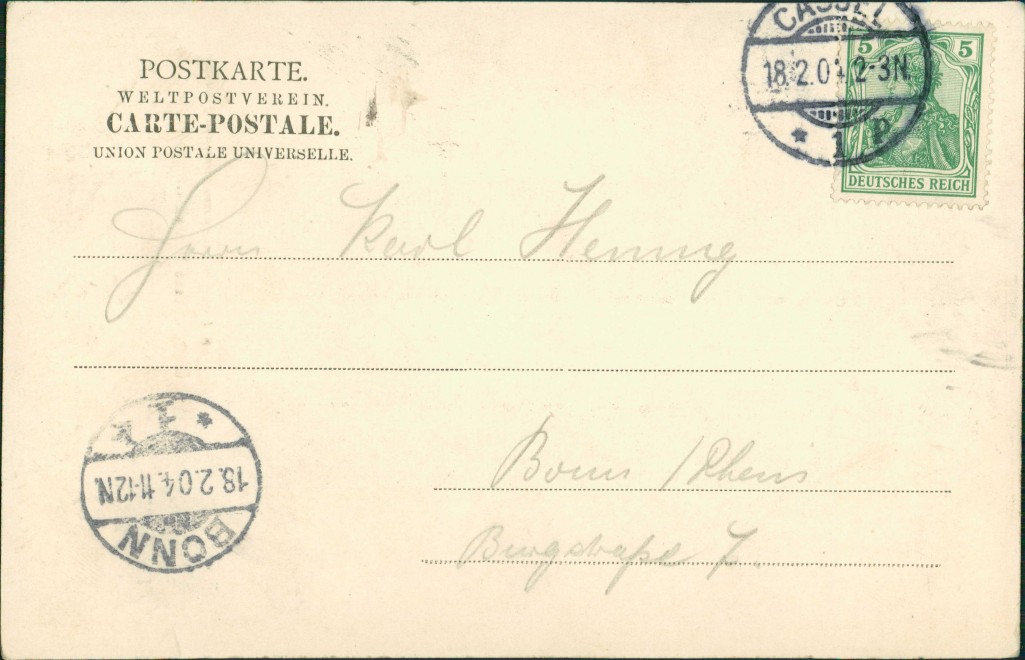 POSTKARTE.
WELTPOSTVEREIN.
CARTE-POSTALE.
UNION POSTALE UNIVERSELLE.
CASSEL
18.2.04 2-3N.
* 1 P
5 5
DEUTSCHES REICH
Herrn Karl Hennig
Bonn / Rhein
Burgstraße 7.
BONN
18.2.04. 11-12N
* 1